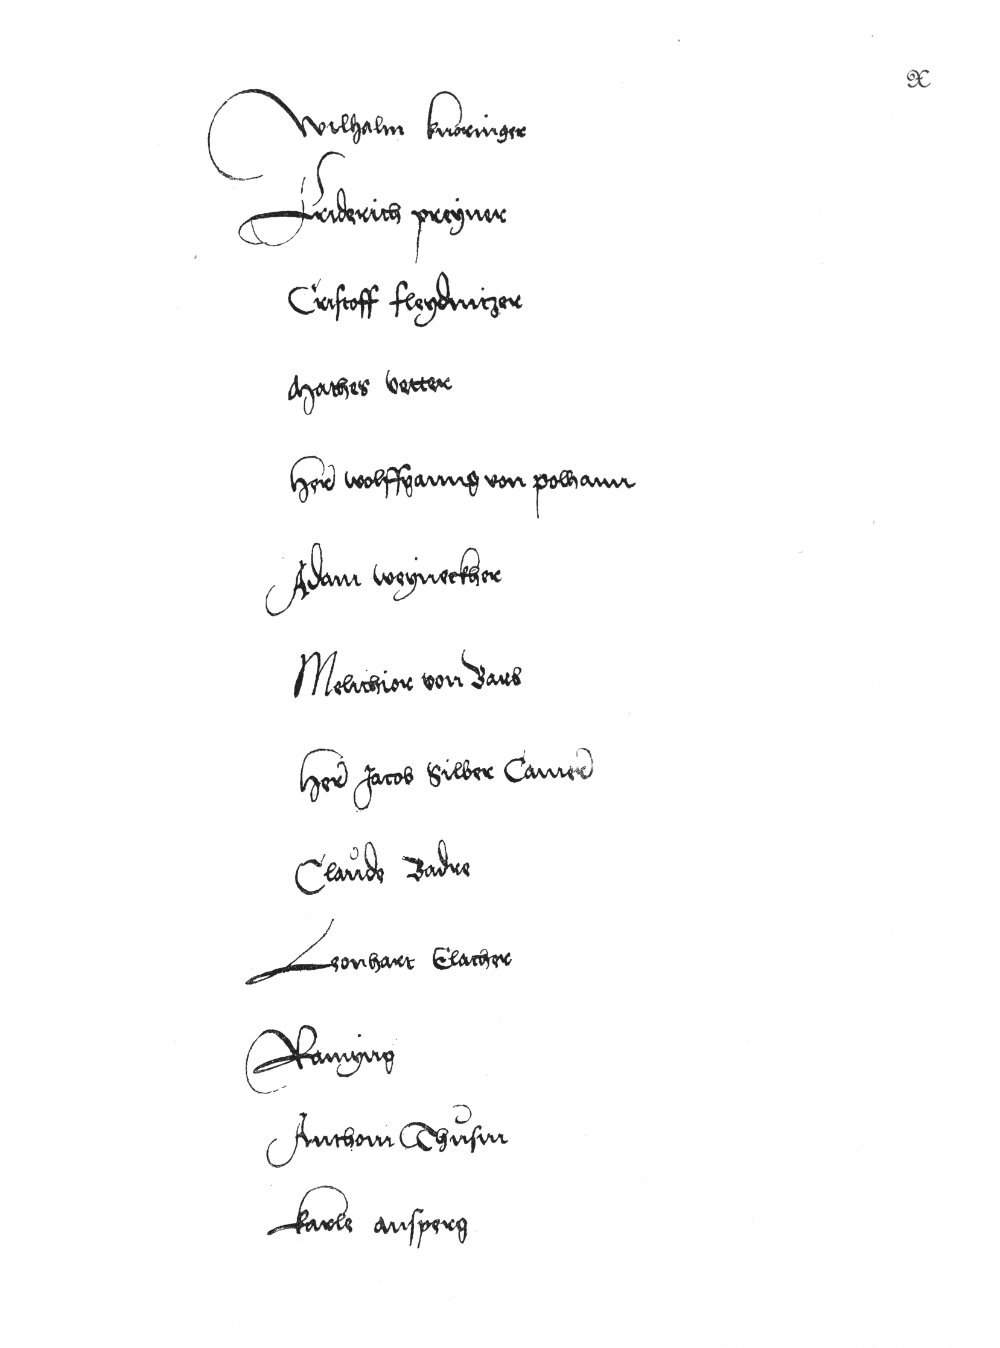 X
Wilhalm knoringer
Friderich preyner
Cristoff fleydnitzer
Mathes vetter
Herr wolffganng von polhann
Adam weyneckher
Melichior von Vars
Herr Jacob Silber Camrer
Claude Vadre
Leonhart Elacher
Ramyng
Anthoni Thusin
karle ansperg